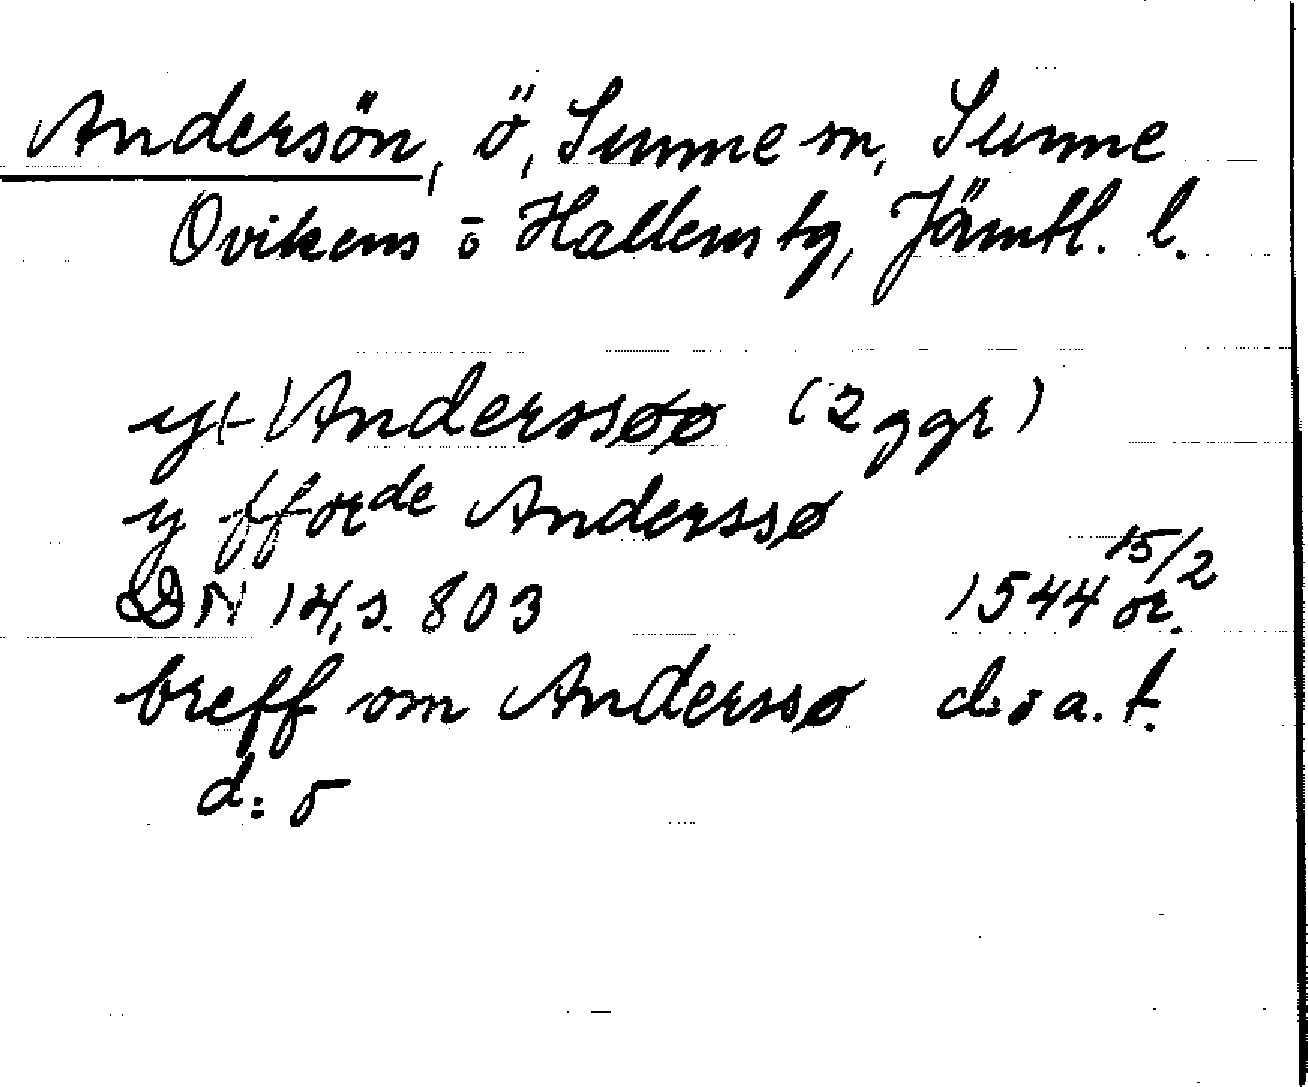 Andersön, ö, Sunne sn, Sunne
Ovikens o Hallens tg, Jämtl. l.
y+ Anderssøø (2 ggr)
y fforde Anderssø
DN 14, s. 803 1544 15/2 or.
breff om Anderssø d:o a. t.
d:o